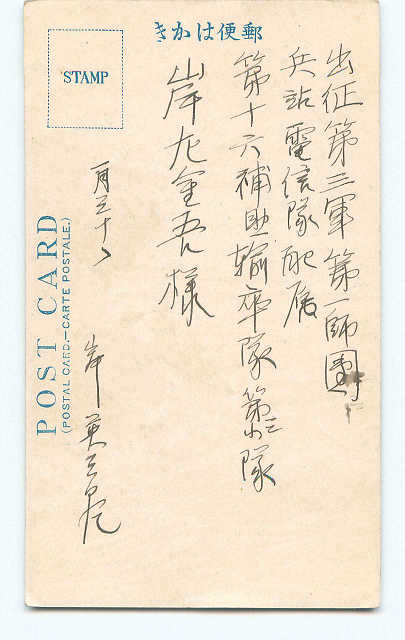 郵便はかき
STAMP
出征第三軍第一師團
兵站電信隊配属
第十六補助輸卒隊第三小隊
岸左金吾様
一月三十
岸英三
POST CARD
(POSTAL CARD.—CARTE POSTALE.)